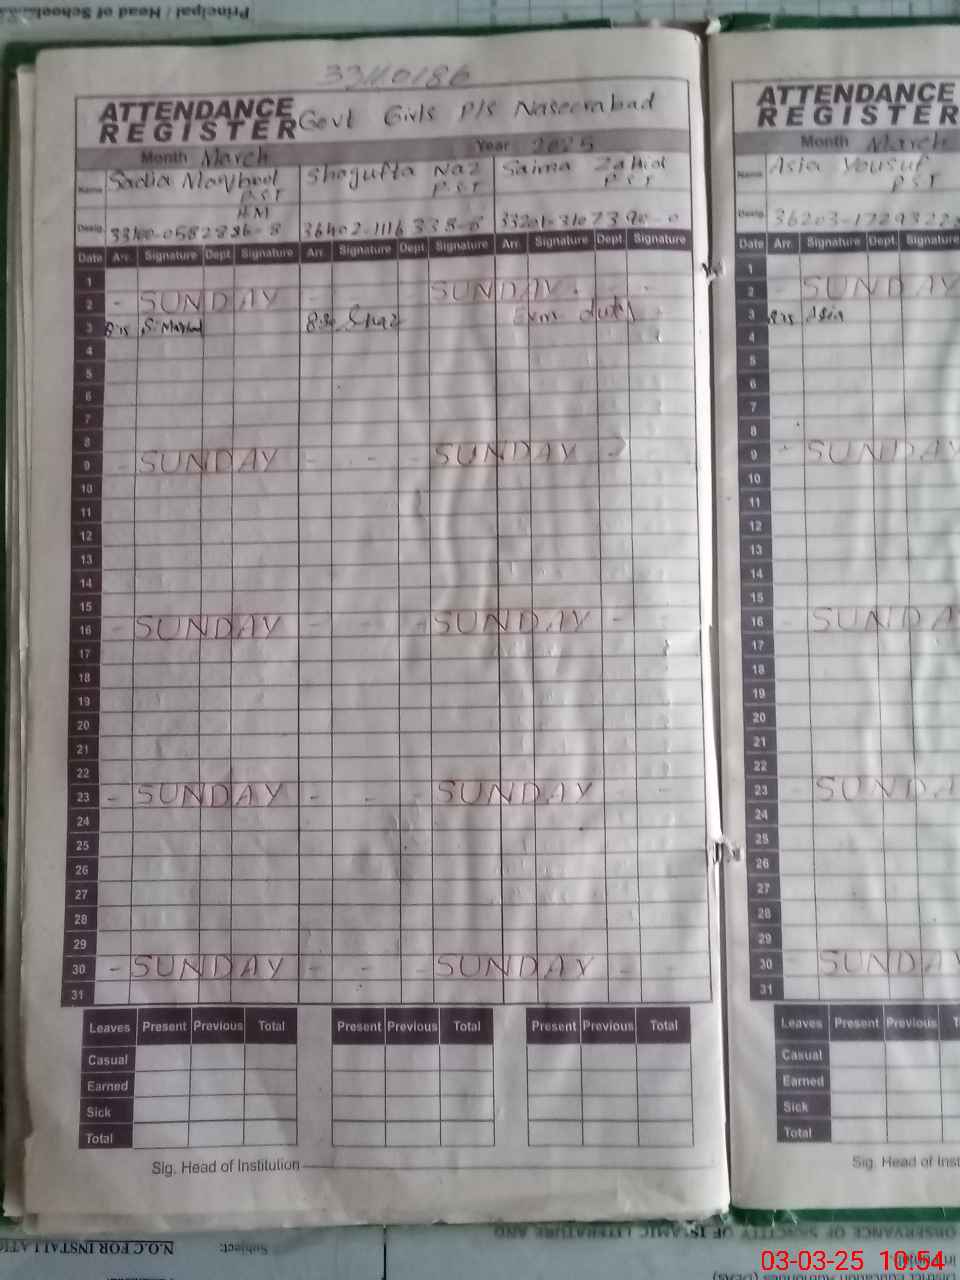 Principal / Head of School
33110186
ATTENDANCE REGISTER Govt Girls P/s Naseerabad
Month March Year 2025
Name Sadia Maqbool PST Shagufta Naz PST Saima Zahid PST
HM
Desig.
Date Arr. Signature Dept. Signature Arr. Signature Dept. Signature Arr. Signature Dept. Signature
1
2 - SUNDAY - SUNDAY - -
3 8:15 8:30 Shaz Exm duty
4
5
6
7
8
9 - SUNDAY - - - SUNDAY
10
11
12
13
14
15
16 - SUNDAY - - - SUNDAY - -
17
18
19
20
21
22
23 - SUNDAY - - - SUNDAY - -
24
25
26
27
28
29
30 - SUNDAY - - - SUNDAY - -
31
Leaves Present Previous Total Present Previous Total Present Previous Total
Casual
Earned
Sick
Total
Sig. Head of Institution
ATTENDANCE
REGISTER
Month March
Name Asia Yousuf
PST
Desig. 36203-1729322
Date Arr. Signature Dept. Signature
1
2 SUNDAY
3 8:15 Asia
4
5
6
7
8
9 - SUNDAY
10
11
12
13
14
15
16 - SUNDAY
17
18
19
20
21
22
23 SUNDAY
24
25
26
27
28
29
30 SUNDAY
31
Leaves Present Previous
Casual
Earned
Sick
Total
Sig. Head of Inst
OBSERVANCE OF SANCTITY OF ISLAMIC LITERATURE AND
Subject:
N.O.C FOR INSTALLATIO
03-03-25 10:54